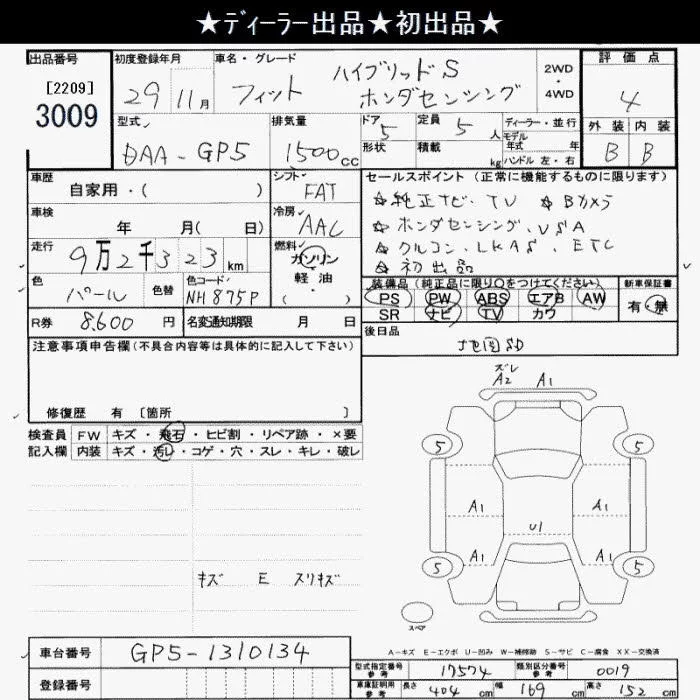 ★ディーラー出品★初出品★
出品番号 初度登録年月 車名・グレード 評価点
[2209] 3009
29 11月 フィット ハイブリッドS ホンダセンシング 2WD・4WD 4
型式 排気量 ドア 定員 ディーラー・並行 外装 内装
DAA-GP5 1500cc 5 5人 モデル年式 年 B B
形状 積載 kg ハンドル 左・右
車歴 シフト セールスポイント (正常に機能するものに限ります)
自家用・( ) FAT ☆純正ナビ、TV ☆Bカメラ
車検 冷房 ☆ホンダセンシング、VSA
年 月( 日) AAC ☆クルコン、LKAS、ETC
走行 燃料 ☆初出品
9万2千323km ガソリン・軽油・( )
色 色替 色コード 装備品 (純正品に限り○をつけてください) 新車保証書
パール NH875P PS PW ABS エアB AW 有・無
SR ナビ TV カワ
R券 8,600円 名変通知期限 月 日 後日品
地図SD
注意事項申告欄(不具合内容等は具体的に記入して下さい)
修復歴 有 [箇所 ]
検査員 FW キズ・飛石・ヒビ割・リペア跡・×要
記入欄 内装 キズ・汚レ・コゲ・穴・スレ・キレ・破レ
ズレ
A2 A1
5 5
A1 A1
U1
A1 A1
5 5
キズ E スリキズ
スペア
A-キズ E-エクボ U-凹み W-補修跡 S-サビ C-腐食 XX-交換済
車台番号 GP5-1310134
登録番号
型式指定番号 参考 17574 類別区分番号 参考 0019
車庫証明用 参考 長さ 404 cm 幅 169 cm 高さ 152 cm